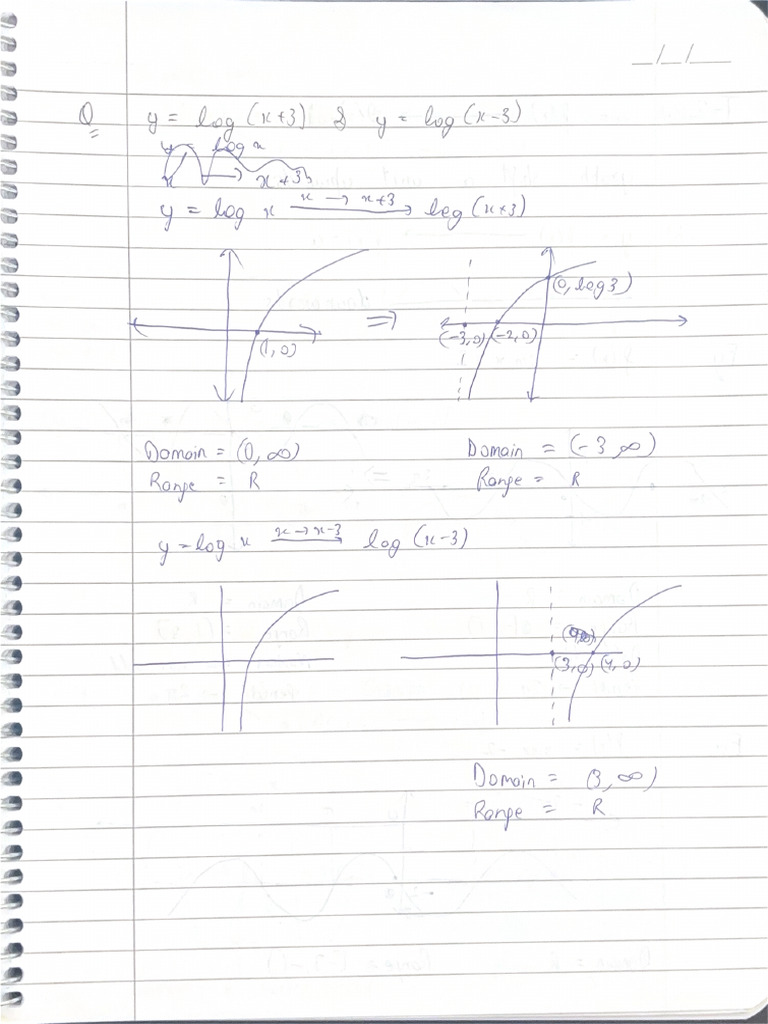 _/_/_
Q y = log (x+3) & y = log (x-3)
y = log x
x → x+3
y = log x x → x+3 log (x+3)
(0, log 3)
⇒
(1, 0) (-3, 0) (-2, 0)
Domain = (0, ∞) Domain = (-3 ∞)
Range = R Range = R
y = log x x → x-3 log (x-3)
(3, 0) (4, 0)
Domain = (3, ∞)
Range = R